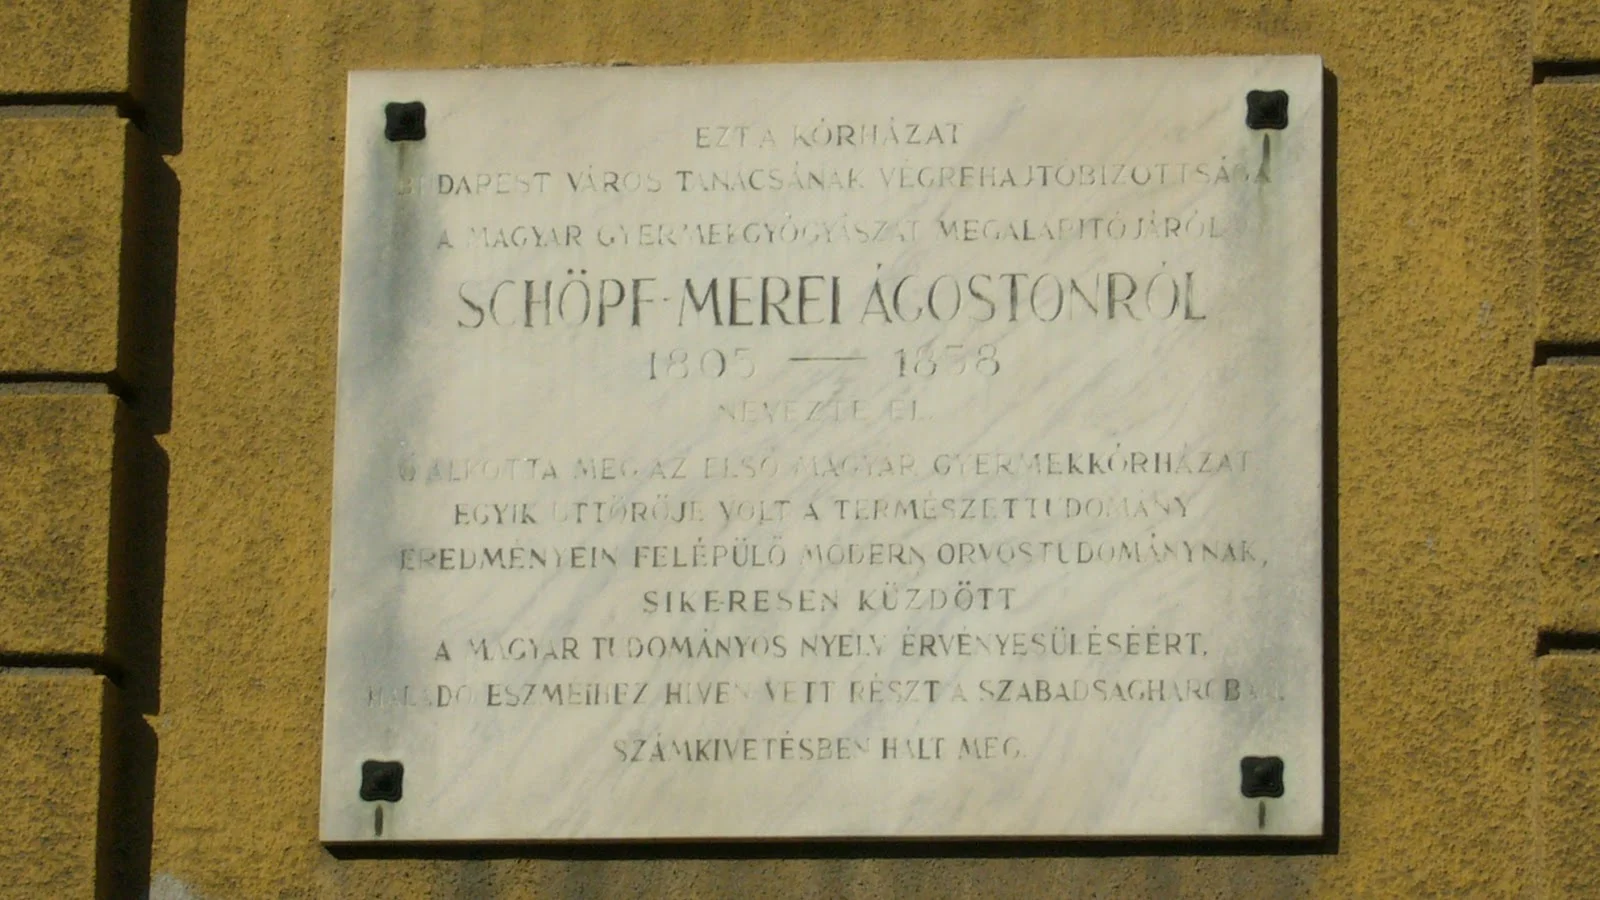 EZT A KÓRHÁZAT
BUDAPEST VÁROS TANÁCSÁNAK VÉGREHAJTÓBIZOTTSÁGA
A MAGYAR GYERMEKGYÓGYÁSZAT MEGALAPITÓJÁRÓL
SCHÖPF-MEREI ÁGOSTONRÓL
1805 — 1858
NEVEZTE EL.
Ő ALKOTTA MEG AZ ELSŐ MAGYAR GYERMEKKÓRHÁZAT
EGYIK UTTÖRŐJE VOLT A TERMÉSZETTUDOMÁNY
EREDMÉNYEIN FELÉPÜLŐ MODERN ORVOSTUDOMÁNYNAK,
SIKERESEN KÜZDÖTT
A MAGYAR TUDOMÁNYOS NYELV ÉRVÉNYESÜLÉSÉÉRT,
HALADÓ ESZMÉIHEZ HIVEN VETT RÉSZT A SZABADSÁGHARCBAN.
SZÁMKIVETÉSBEN HALT MEG.